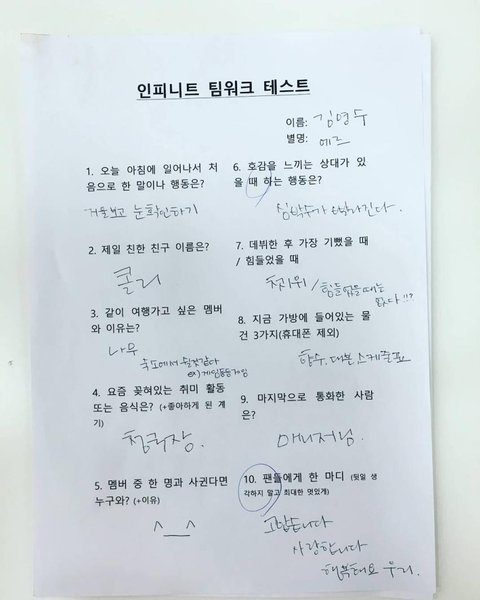 인피니트 팀워크 테스트
이름: 김명수
별명: 에르
1. 오늘 아침에 일어나서 처
음으로 한 말이나 행동은?
거울보고 눈확인하기
2. 제일 친한 친구 이름은?
콜리
3. 같이 여행가고 싶은 멤버
와 이유는?
나무
4. 요즘 꽂혀있는 취미 활동
또는 음식은? (+좋아하게 된 계
기)
청국장.
5. 멤버 중 한 명과 사귄다면
누구와? (+이유)
^__^
6. 호감을 느끼는 상대가 있
을 때 하는 행동은?
심박수가 빨라진다.
7. 데뷔한 후 가장 기뻤을 때
/ 힘들었을 때
첫1위 / 힘들었을때는
없다!!?
8. 지금 가방에 들어있는 물
건 3가지(휴대폰 제외)
향수. 대본 스케줄표
9. 마지막으로 통화한 사람
은?
매니저님.
10. 팬들에게 한 마디 (뒷일 생
각하지 말고 최대한 멋있게)
고맙습니다
사랑합니다
행복해요 우리.